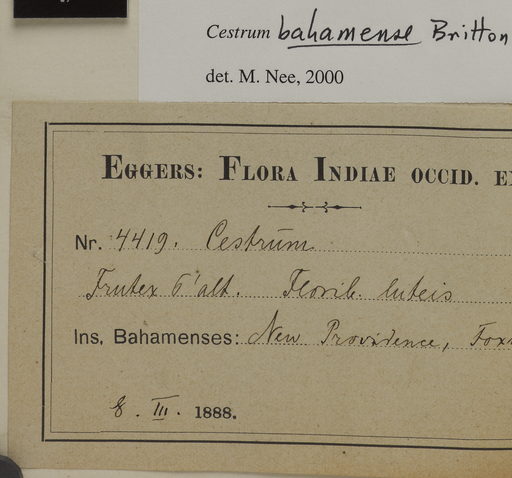 Cestrum bahamense Britton
det. M. Nee, 2000
EGGERS: FLORA INDIAE OCCID.
Nr. 4419. Cestrum
Frutex 6' alt. Florib. luteis
Ins, Bahamenses: New Providence,
8. III. 1888.